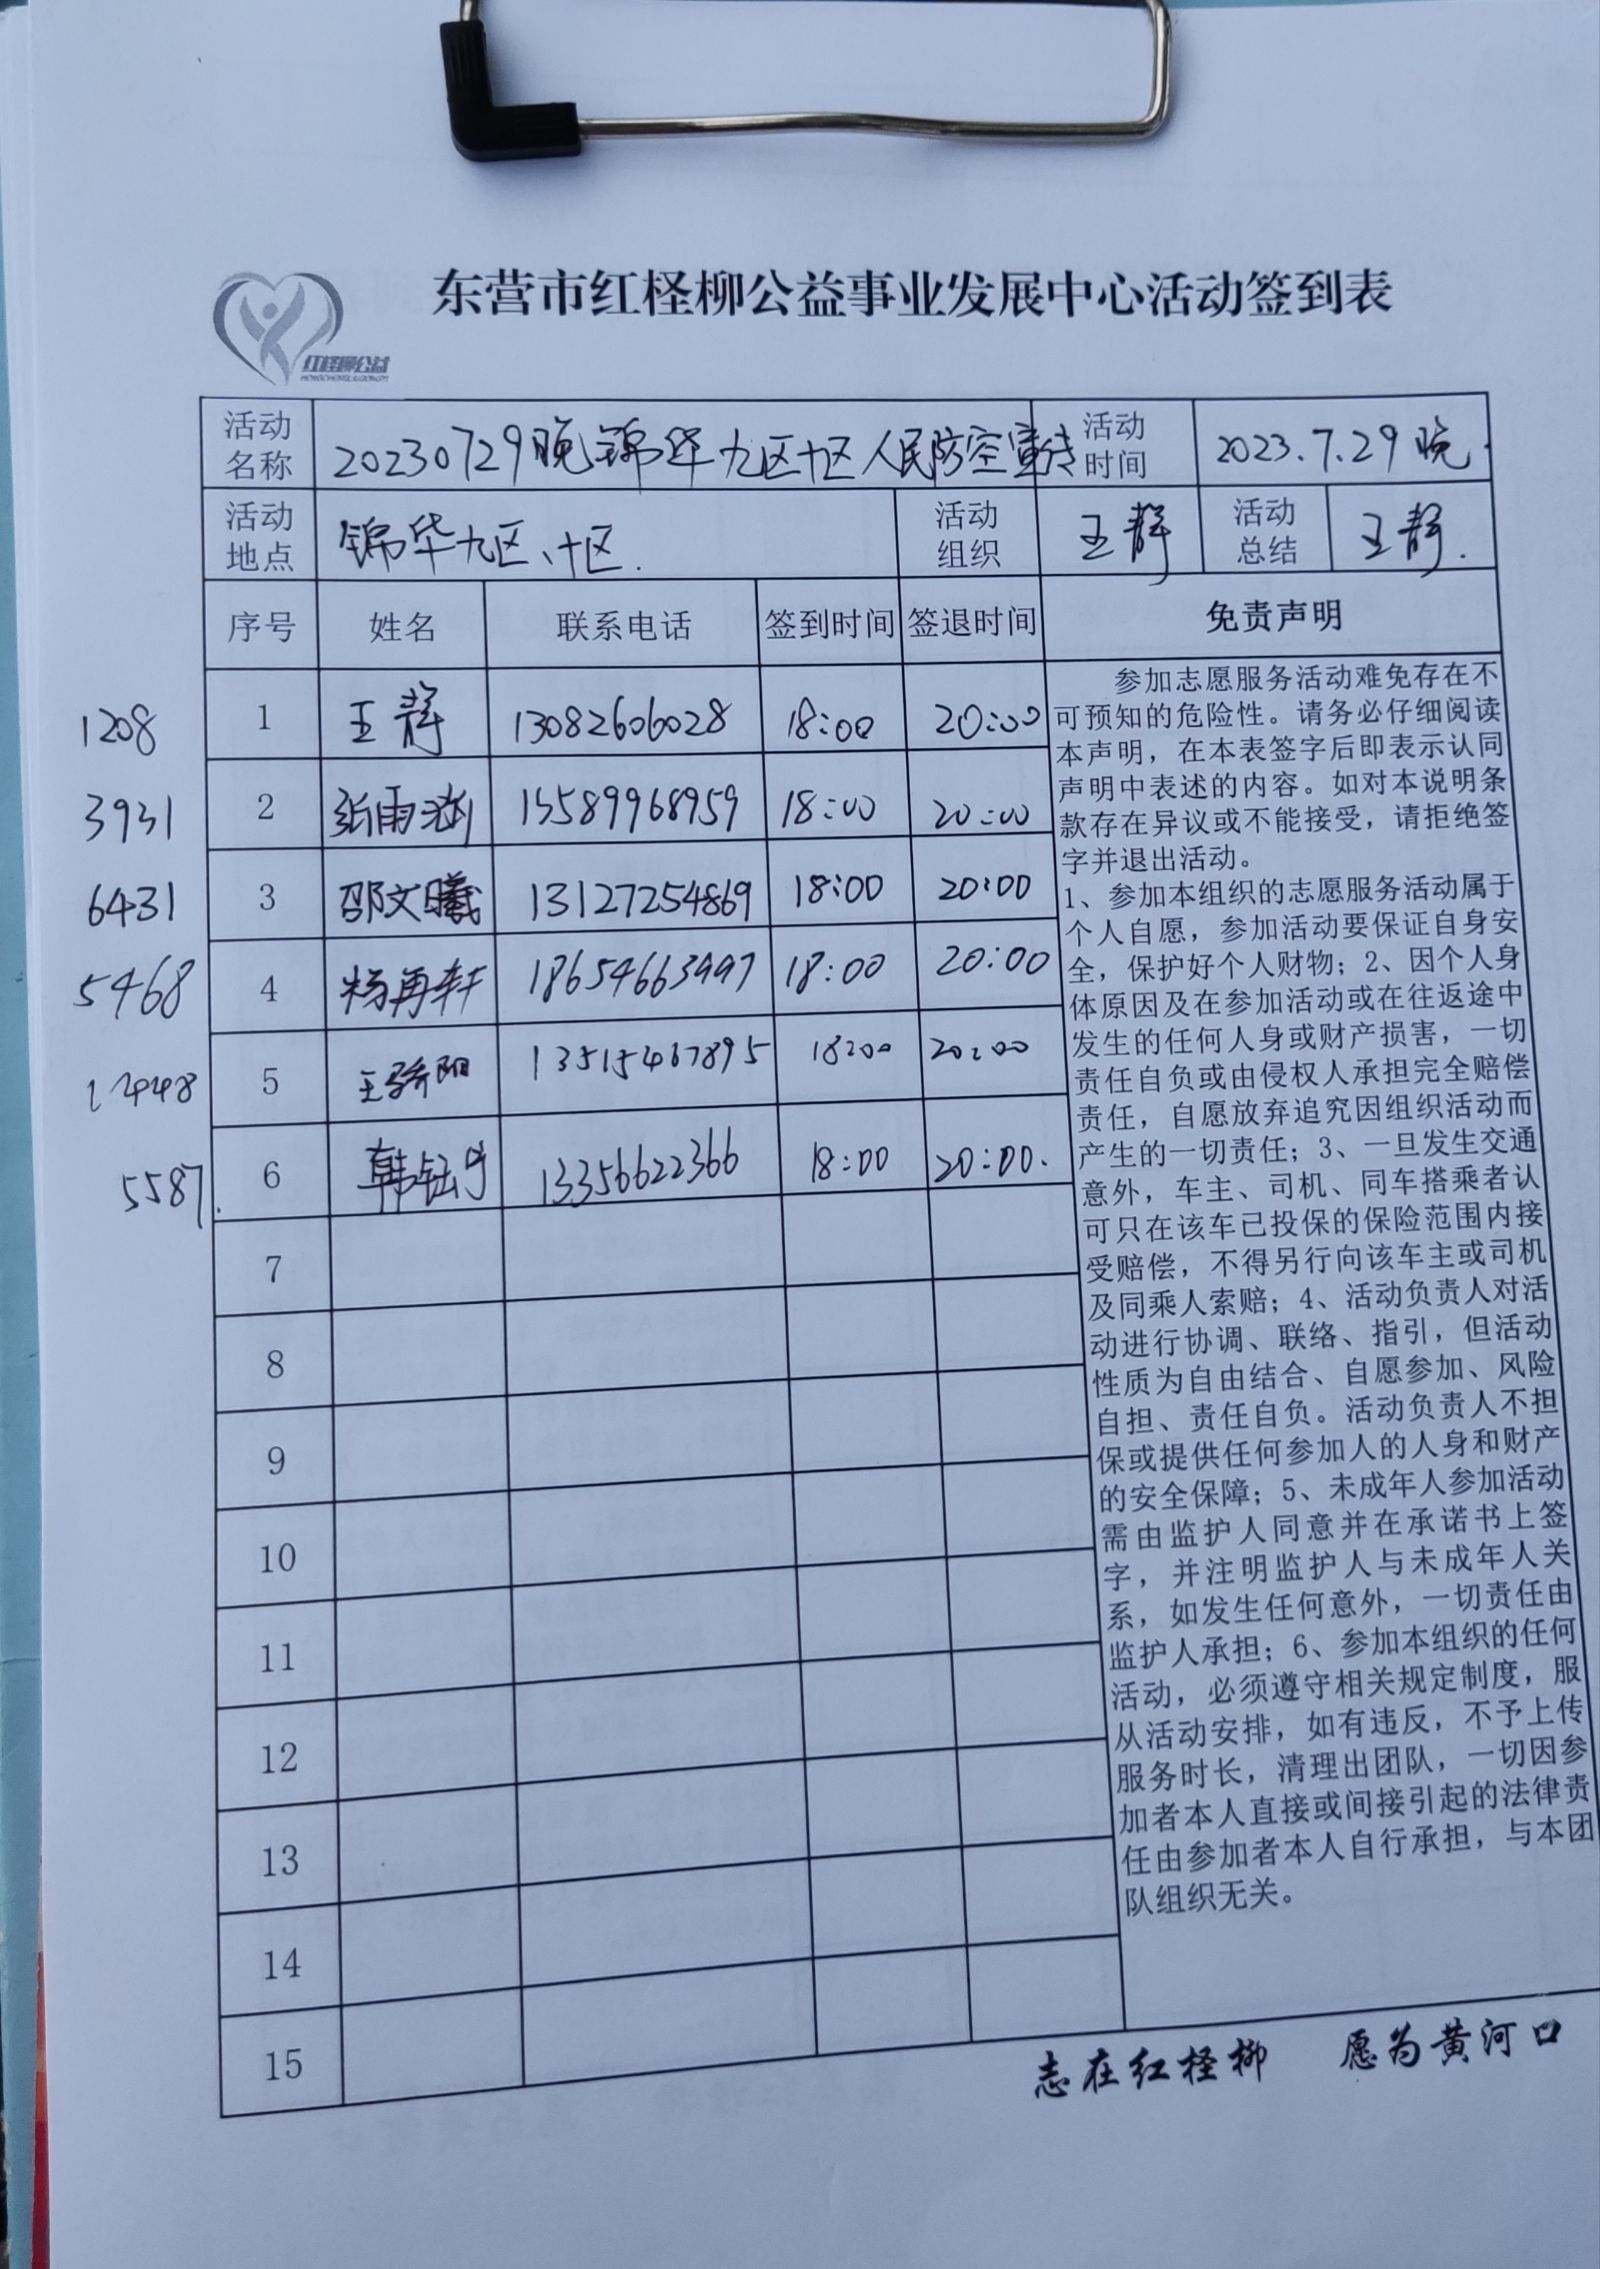 东营市红柽柳公益事业发展中心活动签到表
红柽柳公益
活动名称 20230729晚锦华九区十区人民防空宣传 活动时间 2023.7.29晚.
活动地点 锦华九区、十区. 活动组织 王静 活动总结 王静.
序号 姓名 联系电话 签到时间 签退时间 免责声明
1208 1 王静 13082606028 18:00 20:00
3931 2 15589968959 18:00 20:00
6431 3 邵文曦 13127254869 18:00 20:00
5468 4 杨再轩 18654663997 18:00 20:00
12448 5 王骄阳 13515467895 18:00 20:00
5587. 6 韩钰 13356622366 18:00 20:00.
7
8
9
10
11
12
13
14
15
参加志愿服务活动难免存在不
可预知的危险性。请务必仔细阅读
本声明，在本表签字后即表示认同
声明中表述的内容。如对本说明条
款存在异议或不能接受，请拒绝签
字并退出活动。
1、参加本组织的志愿服务活动属于
个人自愿，参加活动要保证自身安
全，保护好个人财物；2、因个人身
体原因及在参加活动或在往返途中
发生的任何人身或财产损害，一切
责任自负或由侵权人承担完全赔偿
责任，自愿放弃追究因组织活动而
产生的一切责任；3、一旦发生交通
意外，车主、司机、同车搭乘者认
可只在该车已投保的保险范围内接
受赔偿，不得另行向该车主或司机
及同乘人索赔；4、活动负责人对活
动进行协调、联络、指引，但活动
性质为自由结合、自愿参加、风险
自担、责任自负。活动负责人不担
保或提供任何参加人的人身和财产
的安全保障；5、未成年人参加活动
需由监护人同意并在承诺书上签
字，并注明监护人与未成年人关
系，如发生任何意外，一切责任由
监护人承担；6、参加本组织的任何
活动，必须遵守相关规定制度，服
从活动安排，如有违反，不予上传
服务时长，清理出团队，一切因参
加者本人直接或间接引起的法律责
任由参加者本人自行承担，与本团
队组织无关。
志在红柽柳 愿为黄河口